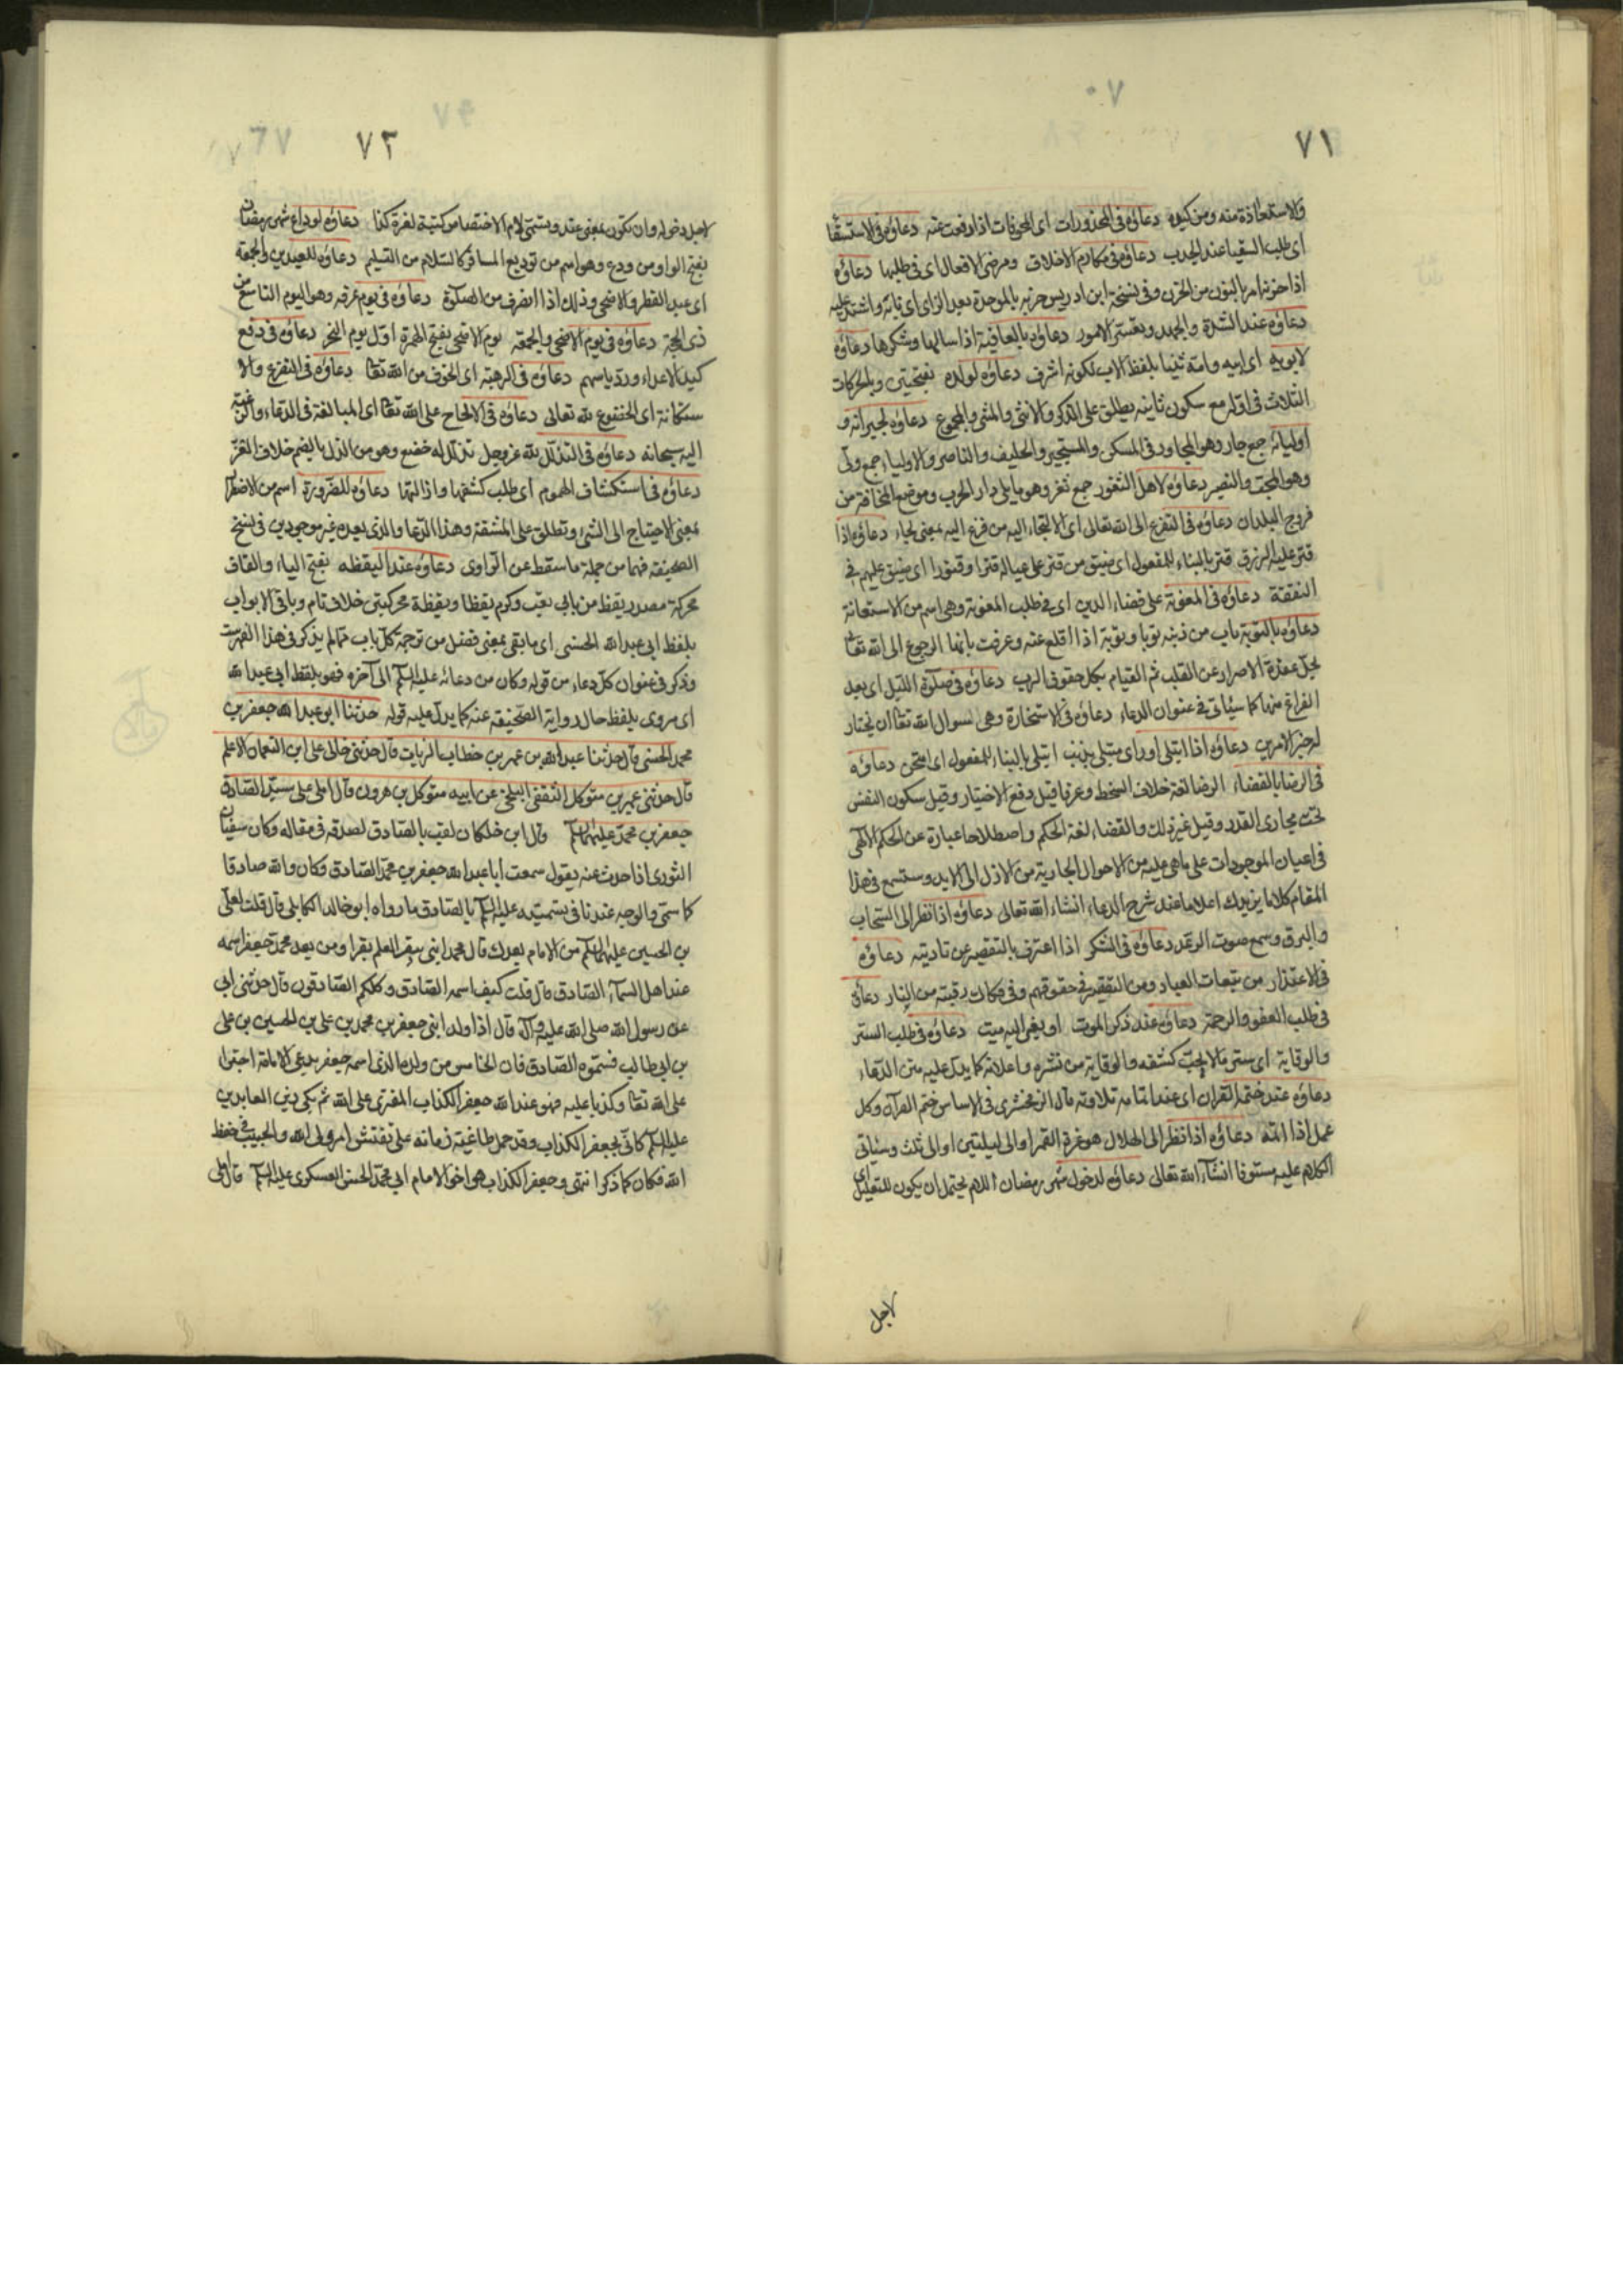 ٧١
والاستعاذة منه ومن كيده دعاؤه فى المحذورات اى المخوفات اذا دفعت عنه دعاؤه فى الاستسقا
اى طلب السقيا عند الجدب دعاؤه فى مكارم الاخلاق ومرضى الافعال اى فى طلبها دعاؤه
اذا حزنه امر بالنون من الحزن وفى نسخة ابن ادريس حزبه بالموحدة بعد الزاى اى نابه واشتد عليه
دعاؤه عند الشدة والجهد وتعسر الامور دعاؤه بالعافية اذا سالها وشكرها دعاؤه
لابويه اى ابيه وامه ثنيا بلفظ الاب لكونه اشرف دعاؤه لولده بفتحيتين وبالحركات
الثلاث فى اوله مع سكون ثانيه يطلق على الذكر والانثى والمثنى والمجموع دعاؤه لجيرانه و
اوليائه جمع جار وهو المجاور فى المسكن والمستجير والحليف والناصر والاولياء جمع ولى
وهو المحب والنصير دعاؤه لاهل الثغور جمع ثغر وهو ما يلى دار الحرب وموضع المخافة من
فروج البلدان دعاؤه فى التفزع الى الله تعالى اى الالتجاء اليه من فزع اليه بمعنى لجاء دعاؤه اذا
قتر عليه الرزق قتر بالبناء للمفعول اى ضيق من قتر على عياله قترا وقتورا اى ضيق عليهم فى
النفقة دعاؤه فى المعونة على قضاء الدين اى فى طلب المعونة وهى اسم من الاستعانة
دعاؤه بالتوبة تاب من ذنبه توبا وتوبة اذا اقلع عنه وعرفت بانها الرجوع الى الله تعا
بحل عقدة الاصرار عن القلب ثم القيام بكل حقوق الرب دعاؤه فى صلوة الليل اى بعد
الفراغ منها كما سيأتى فى عنوان الدعاء دعاؤه فى الاستخارة وهى سوال الله تعا ان يختار
له خير الامرين دعاؤه اذا ابتلى اوراى مبتلى بذنب ابتلى بالبناء للمفعول اى امتحن دعاؤه
فى الرضا بالقضاء الرضا لغة خلاف السخط وعرفا قيل دفع الاختيار وقيل سكون النفس
تحت مجارى القدر وقيل غير ذلك والقضاء لغة الحكم واصطلاحا عبارة عن الحكم الالهى
فى اعيان الموجودات على ما هى عليه من الاحوال الجارية من الازل الى الابد وستسمع فى هذا
المقام كلاما يزيدك اعلاما عند شرح الدعاء انشاء الله تعالى دعاؤه اذا نظر الى السحاب
والبرق وسمع صوت الرعد دعاؤه فى الشكر اذا اعترف بالتقصير عن تاديته دعاؤه
فى الاعتذار من تبعات العباد ومن التقصير فى حقوقهم وفى فكاك رقبته من النار دعاؤه
فى طلب العفو والرحمة دعاؤه عند ذكر الموت او نعى اليه ميت دعاؤه فى طلب الستر
والوقاية اى ستر ما لا يحب كشفه والوقاية من نشره واعلانه كما يدل عليه متن الدعاء
دعاؤه عند ختم القران اى عند اتمامه تلاوته قال الزمخشرى فى الاساس ختم القرآن وكل
عمل اذا اتمه دعاؤه اذا نظر الى الهلال هو غرة القمر او الى ليلتين او الى ثلث وسيأتى
الكلام عليه مستوفا انشآء الله تعالى دعاؤه لدخول شهر رمضان اللام يحتمل ان يكون للتعليل اى
لاجل
٧٢
لاجل دخوله وان تكون بمعنى عند وتسمى لام الاختصاص كتبته لغرة كذا دعاؤه لوداع شهر رمضان
بفتح الواو من ودع وهو اسم من توديع المسافر كالسلام من التسليم دعاؤه للعيدين والجمعة
اى عيد الفطر والاضحى وذلك اذا انصرف من الصلوة دعاؤه فى يوم عرفه وهو اليوم التاسع من
ذى الحجة دعاؤه فى يوم الاضحى والجمعة يوم الاضحى بفتح الهمزة اول يوم النحر دعاؤه فى دفع
كيد الاعداء ورد باسهم دعاؤه فى الرهبة اى الخوف من الله تعا دعاؤه فى التضرع والا
ستكانة اى الخضوع لله تعالى دعاؤه فى الالحاح على الله تعا اى المبالغة فى الدعاء والرغبة
اليه سبحانه دعاؤه فى التذلل لله عز وجل تذلل له خضع وهو من الذل بالضم خلاف العز
دعاؤه فى استكشاف الهموم اى طلب كشفها وازالتها دعاؤه للضرورة اسم من الاضطرار
بمعنى الاحتياج الى الشئ وتطلق على المشقة وهذا الدعا والذى بعده غير موجودين فى نسخ
الصحيفة فهما من جملة ما سقط عن الراوى دعاؤه عند اليقظه بفتح الياء والقاف
محركة مصدر يقظ من بابى تعب وكرم يقظا ويقظة محركتين خلاف نام وباقى الابواب
بلفظ ابى عبدالله الحسنى اى ما بقى بمعنى فضل من ترجمة كل باب مما لم يذكر فى هذا الفهرست
وذكر فى عنوان كل دعاء من قوله وكان من دعائه عليه السلم الى آخره فهو بلفظ ابى عبدالله
اى مروى بلفظ حال رواية الصحيفة عنه كما يدل عليه قوله حدثنا ابو عبدالله جعفر بن
محمد الحسنى قال حدثنا عبدالله بن عمر بن خطاب الزيات قال حدثنى خالى على ابن النعمان الاعلم
قال حدثنى عمير بن متوكل الثقفى البلخى عن ابيه متوكل بن هرون قال املى على سيدى الصادق
جعفر بن محمد عليهما السلم قال ابن خلكان لقب بالصادق لصدقه فى مقاله وكان سفيان
الثورى اذا حدث عنه يقول سمعت ابا عبدالله جعفر بن محمد الصادق وكان والله صادقا
كما سمى والوجه عندنا فى تسميته عليه السلم بالصادق ما رواه ابو خالد الكابلى قال قلت لعلى
بن الحسين عليهما السلم من الامام بعدك قال محمد ابنى يبقر العلم بقرا ومن بعد محمد جعفر اسمه
عند اهل السمآء الصادق قال قلت كيف اسمه الصادق وكلكم الصادقون قال حدثنى ابى
عن رسول الله صلى الله عليه وآله قال اذا ولد ابنى جعفر بن محمد بن على بن الحسين بن على
بن ابى طالب فسموه الصادق فان الخامس من ولده الذى اسمه جعفر يدعى الامامة اجترا
على الله تعا وكذبا عليه فهو عند الله جعفر الكذاب المفترى على الله ثم بكى زين العابدين
عليه السلم كانى بجعفر الكذاب وقد حمل طاغية زمانه على تفتيش امر ولى الله والمغيب فى حفظ
الله فكان كما ذكر انتهى وجعفر الكذاب هو اخو الامام ابى محمد الحسن العسكرى عليه السلم قال املى